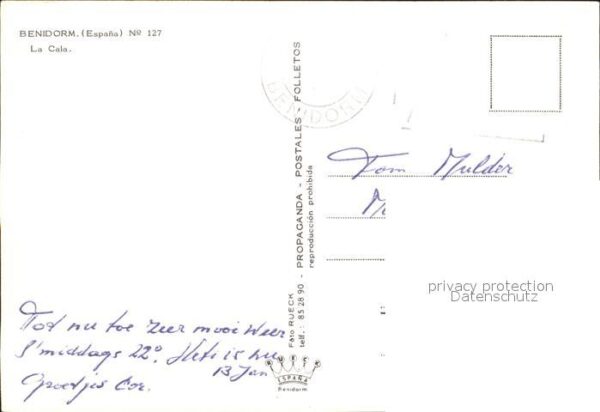 BENIDORM. (España) Nº 127
La Cala.
BENIDORM
Foto RUECK
telf.: 85 28 90 - PROPAGANDA - POSTALES - FOLLETOS
reproducción prohibida
Tom Mulder
privacy protection
Datenschutz
Tot nu toe zeer mooi weer
s'middags 22°. Het is nu
13 Jan
Groetjes Cor.
ESPAÑA
Benidorm